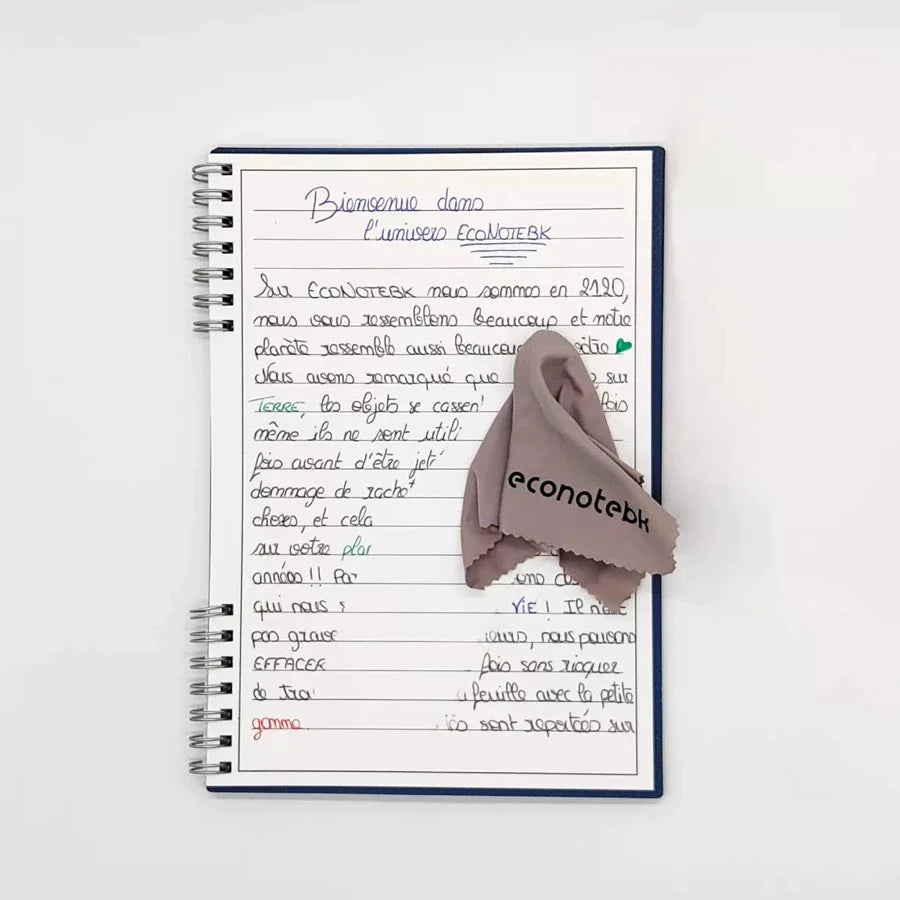 Bienvenue dans
l'univers ECONOTEBK
Sur ECONOTEBK nous sommes en 2120,
nous vous ressemblons beaucoup et notre
planète ressemble aussi beaucoup vôtre
Nous avons remarqué que sur
TERRE, les objets se cassen fois
même ils ne sont utili
fois avant d'être jet
dommage de rachet
choses, et cela
sur votre plan
années !! Pa
qui nous VIE ! Il n'est
pas grave nous pouvons
EFFACER fois sans risquer
de tra feuille avec la petite
gomme sont reportées sur
econotebk